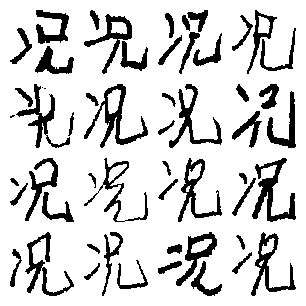 况况况况
况况况况
况况况况
况况况况